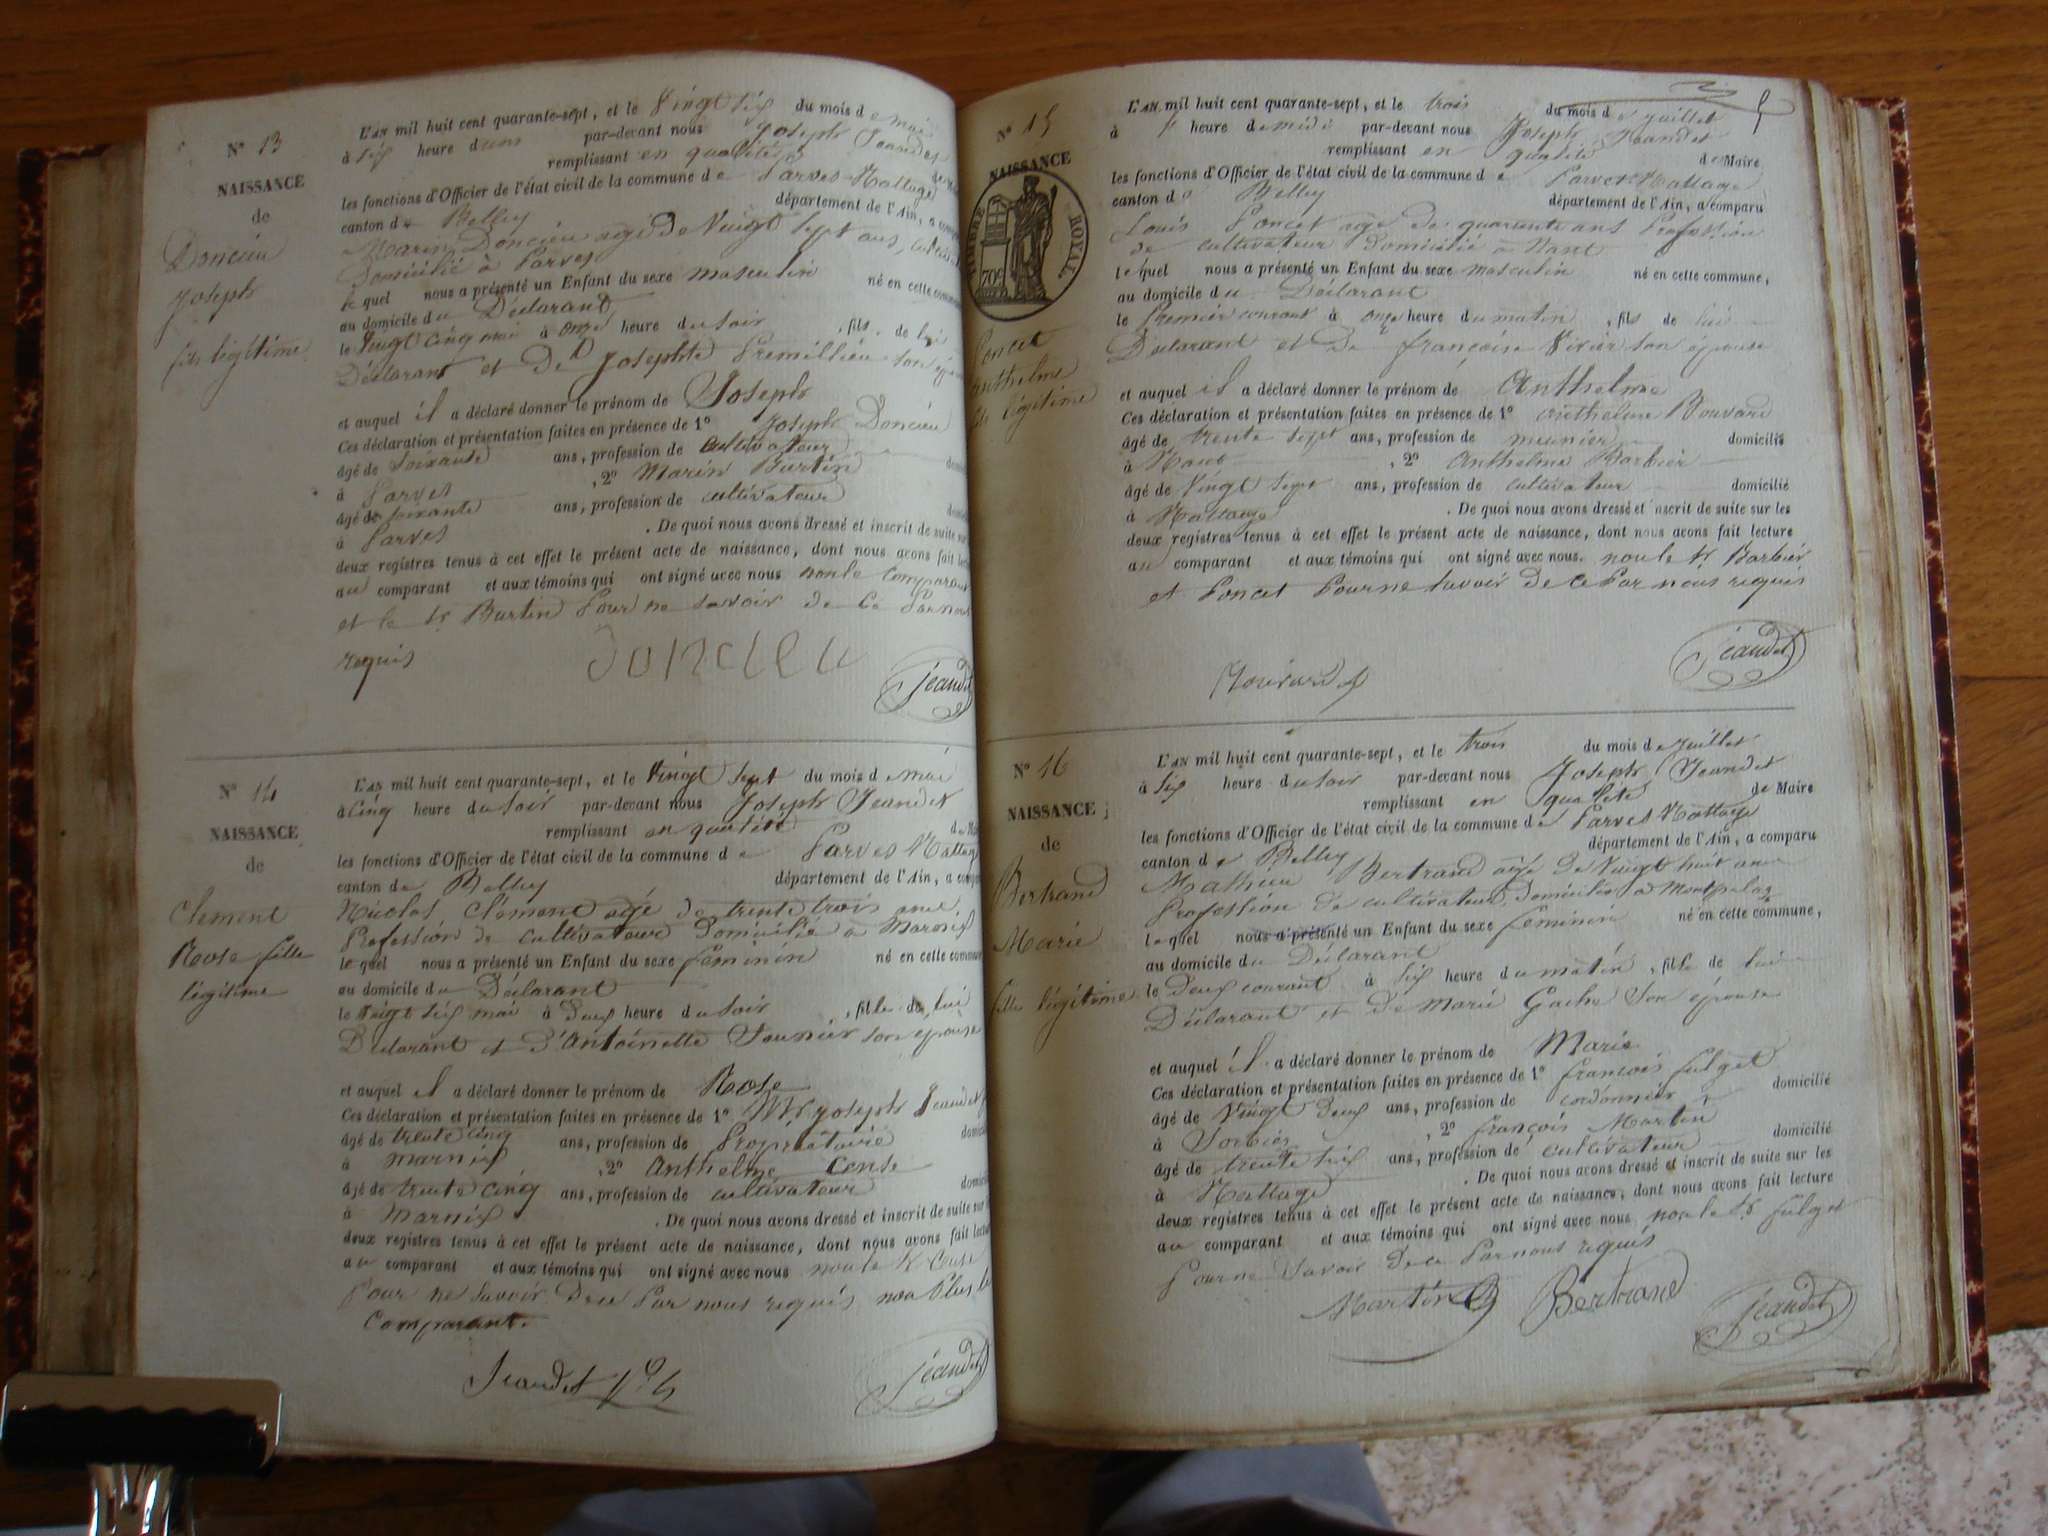 N° 13
NAISSANCE
de
Doncieu
Joseph
fils légitime
L'AN mil huit cent quarante-sept, et le Vingt six du mois de mai
à six heure du par-devant nous Joseph Jeandet
remplissant en qualité
les fonctions d'Officier de l'état civil de la commune de Parves-Nattage
canton de Belley département de l'Ain, a
Marin Doncieu agé de Vingt sept ans,
Domicilié à Parves
lequel nous a présenté un Enfant du sexe masculin né en cette
au domicile du Déclarant
le Vingt cinq mai à onze heure du soir , fils de lui
Déclarant et De Josephte Premillieu son
et auquel il a déclaré donner le prénom de Joseph
Ces déclaration et présentation faites en présence de 1° Joseph Doncieu
âgé de soixante ans, profession de cultivateur
à Parves , 2° Marin Burtin
âgé de soixante ans, profession de cultivateur
à Parves . De quoi nous avons dressé et inscrit de suite
deux registres tenus à cet effet le présent acte de naissance, dont nous avons fait
au comparant et aux témoins qui ont signé avec nous non le comparant
et le Sr Burtin Pour ne savoir de ce Par nous
requis
Doncieu
Jeandet
N° 14
NAISSANCE
de
Clement
Rose fille
légitime
L'AN mil huit cent quarante-sept, et le Vingt sept du mois de mai
à cinq heure du soir par-devant nous Joseph Jeandet
remplissant en qualité
les fonctions d'Officier de l'état civil de la commune de Parves Nattage
canton de Belley département de l'Ain, a
Nicolas Clément agé de trente trois ans,
Profession de cultivateur Domicilié à Marnix
lequel nous a présenté un Enfant du sexe féminin né en cette
au domicile du Déclarant
le Vingt six mai à Deux heure du soir , fille de lui
Déclarant et d'Antoinette Saunier son épouse
et auquel il a déclaré donner le prénom de Rose
Ces déclaration et présentation faites en présence de 1° Mr Joseph Jeandet
âgé de trente cinq ans, profession de Propriétaire
à marnix , 2° Anthelme Cense
âgé de trente cinq ans, profession de cultivateur
à Marnix . De quoi nous avons dressé et inscrit de suite sur
deux registres tenus à cet effet le présent acte de naissance, dont nous avons fait
au comparant et aux témoins qui ont signé avec nous non le Sr Cense
Pour ne savoir De ce Par nous requis non Plus le
Comparant.
Jeandet
Jeandet
N° 15
NAISSANCE
TIMBRE ROYAL
70c
Poncet
Anthelme
fils légitime
L'AN mil huit cent quarante-sept, et le trois du mois de juillet
à heure de midi par-devant nous Joseph Jeandet
remplissant en qualité de Maire
les fonctions d'Officier de l'état civil de la commune de Parves Nattage
canton de Belley département de l'Ain, a comparu
Louis Poncet agé de quarante ans Profession
de cultivateur domicilié à Nant
lequel nous a présenté un Enfant du sexe masculin né en cette commune,
au domicile du Déclarant
le Premier courant à onze heure du matin , fils de lui
Déclarant et De françoise Vivier son épouse
et auquel il a déclaré donner le prénom de Anthelme
Ces déclaration et présentation faites en présence de 1° Anthelme Bouvard
âgé de trente sept ans, profession de meunier domicilié
à Nant , 2° Anthelme Barbier
âgé de Vingt sept ans, profession de cultivateur domicilié
à Nattage . De quoi nous avons dressé et inscrit de suite sur les
deux registres tenus à cet effet le présent acte de naissance, dont nous avons fait lecture
au comparant et aux témoins qui ont signé avec nous. non le Sr Barbier
et Poncet Pour ne savoir De ce Par nous requis
Bouvard
Jeandet
N° 16
NAISSANCE
de
Bertrand
Marie
fille légitime
L'AN mil huit cent quarante-sept, et le trois du mois de juillet
à six heure du soir par-devant nous Joseph Jeandet
remplissant en qualité de Maire
les fonctions d'Officier de l'état civil de la commune de Parves Nattage
canton de Belley département de l'Ain, a comparu
Mathieu Bertrand agé De Vingt huit ans
Profession de cultivateur, Domicilié à
lequel nous a présenté un Enfant du sexe feminin né en cette commune,
au domicile du Déclarant
le Deux courant à six heure du matin , fille de lui
Déclarant et de Marie Gache son épouse
et auquel il a déclaré donner le prénom de Marie
Ces déclaration et présentation faites en présence de 1° françois fulget
âgé de Vingt Deux ans, profession de cordonnier domicilié
à Sorbier , 2° françois Martin
âgé de trente six ans, profession de cultivateur domicilié
à Nattage . De quoi nous avons dressé et inscrit de suite sur les
deux registres tenus à cet effet le présent acte de naissance, dont nous avons fait lecture
au comparant et aux témoins qui ont signé avec nous non le Sr fulget
Pour ne savoir De ce Par nous requis
Martin Bertrand Jeandet